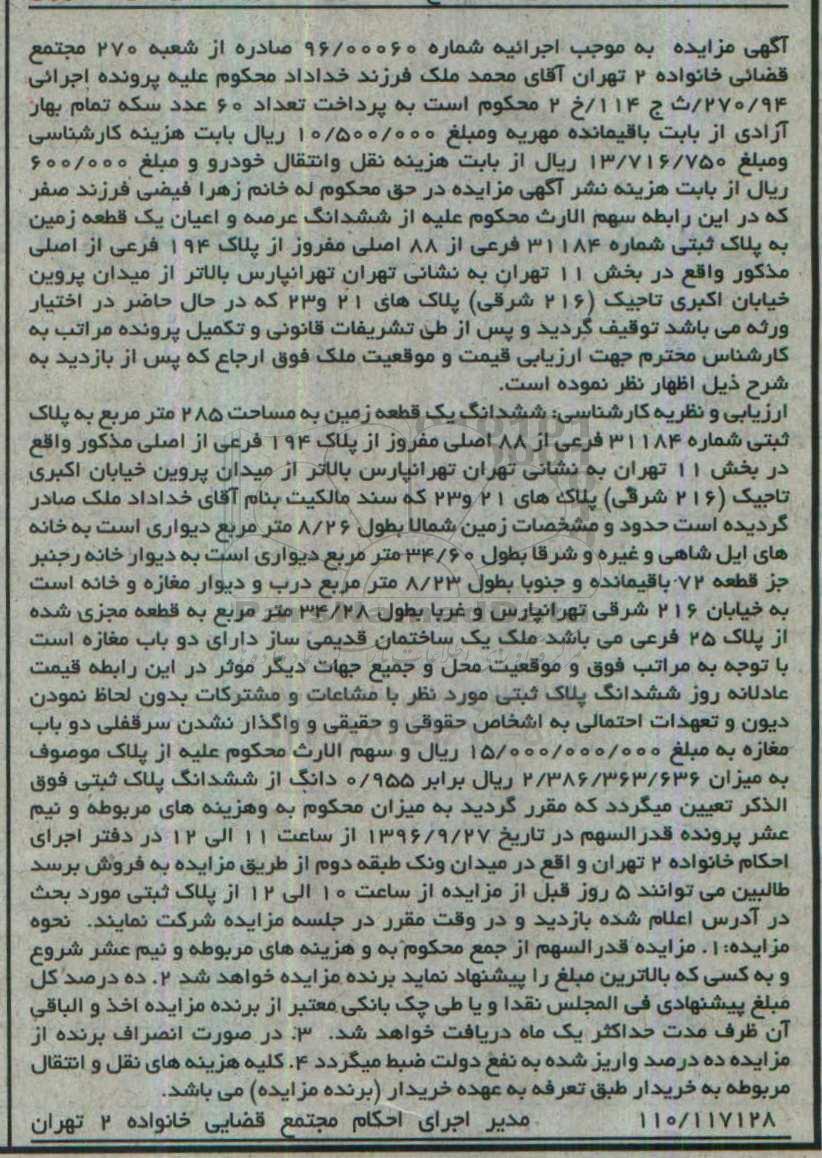 آگهی مزایده به موجب اجرائیه شماره ۹۶/۰۰۰۶۰ صادره از شعبه ۲۷۰ مجتمع
قضائی خانواده ۲ تهران آقای محمد ملک فرزند خداداد محکوم علیه پرونده اجرائی
۲۷۰/۹۴/ث ج ۱۱۴/خ ۲ محکوم است به پرداخت تعداد ۶۰ عدد سکه تمام بهار
آزادی از بابت باقیمانده مهریه ومبلغ ۱۰/۵۰۰/۰۰۰ ریال بابت هزینه کارشناسی
ومبلغ ۱۳/۷۱۶/۷۵۰ ریال از بابت هزینه نقل وانتقال خودرو و مبلغ ۶۰۰/۰۰۰
ریال از بابت هزینه نشر آگهی مزایده در حق محکوم له خانم زهرا فیضی فرزند صفر
که در این رابطه سهم الارث محکوم علیه از ششدانگ عرصه و اعیان یک قطعه زمین
به پلاک ثبتی شماره ۳۱۱۸۴ فرعی از ۸۸ اصلی مفروز از پلاک ۱۹۴ فرعی از اصلی
مذکور واقع در بخش ۱۱ تهران به نشانی تهران تهرانپارس بالاتر از میدان پروین
خیابان اکبری تاجیک (۲۱۶ شرقی) پلاک های ۲۱ و۲۳ که در حال حاضر در اختیار
ورثه می باشد توقیف گردید و پس از طی تشریفات قانونی و تکمیل پرونده مراتب به
کارشناس محترم جهت ارزیابی قیمت و موقعیت ملک فوق ارجاع که پس از بازدید به
شرح ذیل اظهار نظر نموده است.
ارزیابی و نظریه کارشناسی: ششدانگ یک قطعه زمین به مساحت ۲۸۵ متر مربع به پلاک
ثبتی شماره ۳۱۱۸۴ فرعی از ۸۸ اصلی مفروز از پلاک ۱۹۴ فرعی از اصلی مذکور واقع
در بخش ۱۱ تهران به نشانی تهران تهرانپارس بالاتر از میدان پروین خیابان اکبری
تاجیک (۲۱۶ شرقی) پلاک های ۲۱ و۲۳ که سند مالکیت بنام آقای خداداد ملک صادر
گردیده است حدود و مشخصات زمین شمالا بطول ۸/۲۶ متر مربع دیواری است به خانه
های ایل شاهی و غیره و شرقا بطول ۳۴/۶۰ متر مربع دیواری است به دیوار خانه رجنبر
جز قطعه ۷۲ باقیمانده و جنوبا بطول ۸/۲۳ متر مربع درب و دیوار مغازه و خانه است
به خیابان ۲۱۶ شرقی تهرانپارس و غربا بطول ۳۴/۲۸ متر مربع به قطعه مجزی شده
از پلاک ۲۵ فرعی می باشد ملک یک ساختمان قدیمی ساز دارای دو باب مغازه است
با توجه به مراتب فوق و موقعیت محل و جمیع جهات دیگر موثر در این رابطه قیمت
عادلانه روز ششدانگ پلاک ثبتی مورد نظر با مشاعات و مشترکات بدون لحاظ نمودن
دیون و تعهدات احتمالی به اشخاص حقوقی و حقیقی و واگذار نشدن سرقفلی دو باب
مغازه به مبلغ ۱۵/۰۰۰/۰۰۰/۰۰۰ ریال و سهم الارث محکوم علیه از پلاک موصوف
به میزان ۲/۳۸۶/۳۶۳/۶۳۶ ریال برابر ۰/۹۵۵ دانگ از ششدانگ پلاک ثبتی فوق
الذکر تعیین میگردد که مقرر گردید به میزان محکوم به وهزینه های مربوطه و نیم
عشر پرونده قدرالسهم در تاریخ ۱۳۹۶/۹/۲۷ از ساعت ۱۱ الی ۱۲ در دفتر اجرای
احکام خانواده ۲ تهران و اقع در میدان ونک طبقه دوم از طریق مزایده به فروش برسد
طالبین می توانند ۵ روز قبل از مزایده از ساعت ۱۰ الی ۱۲ از پلاک ثبتی مورد بحث
در آدرس اعلام شده بازدید و در وقت مقرر در جلسه مزایده شرکت نمایند. نحوه
مزایده:۱. مزایده قدرالسهم از جمع محکوم به و هزینه های مربوطه و نیم عشر شروع
و به کسی که بالاترین مبلغ را پیشنهاد نماید برنده مزایده خواهد شد ۲. ده درصد کل
مبلغ پیشنهادی فی المجلس نقدا و یا طی چک بانکی معتبر از برنده مزایده اخذ و الباقی
آن ظرف مدت حداکثر یک ماه دریافت خواهد شد. ۳. در صورت انصراف برنده از
مزایده ده درصد واریز شده به نفع دولت ضبط میگردد ۴. کلیه هزینه های نقل و انتقال
مربوطه به خریدار طبق تعرفه به عهده خریدار (برنده مزایده) می باشد.
۱۱۰/۱۱۷۱۲۸ مدیر اجرای احکام مجتمع قضایی خانواده ۲ تهران